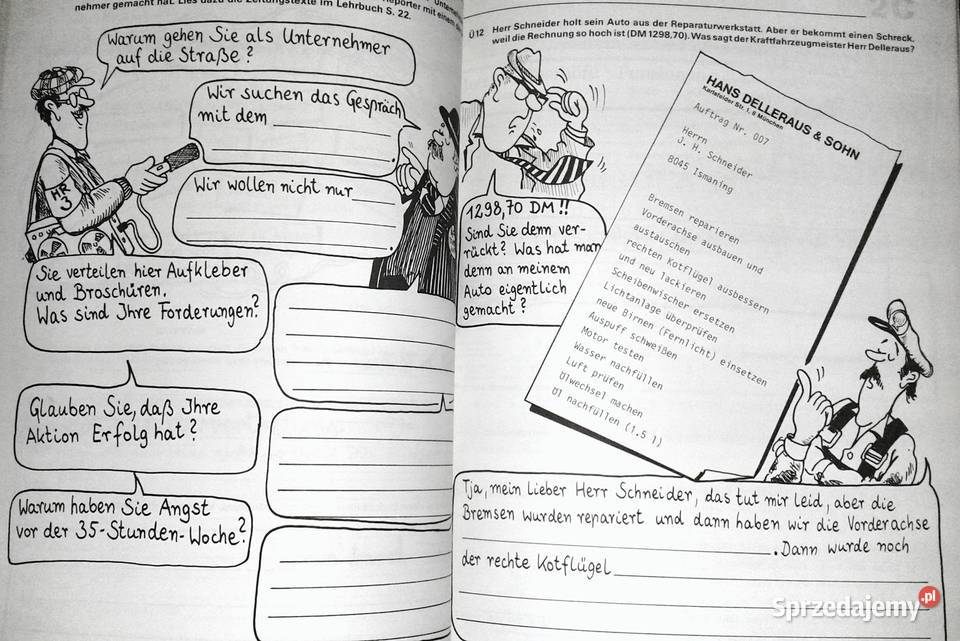 nehmer gemacht hat. Lies dazu die Zeitungstexte im Lehrbuch S. 22.
Warum gehen Sie als Unternehmer
auf die Straße?
Wir suchen das Gespräch
mit dem
.
Wir wollen nicht nur
.
HR
3
Sie verteilen hier Aufkleber
und Broschüren.
Was sind Ihre Forderungen?
Glauben Sie, daß Ihre
Aktion Erfolg hat?
Warum haben Sie Angst
vor der 35-Stunden-Woche?
2C
Ü12 Herr Schneider holt sein Auto aus der Reparaturwerkstatt. Aber er bekommt einen Schreck,
weil die Rechnung so hoch ist (DM 1298,70). Was sagt der Kraftfahrzeugmeister Herr Delleraus?
1298,70 DM!!
Sind Sie denn ver-
rückt? Was hat man
denn an meinem
Auto eigentlich
gemacht?
HANS DELLERAUS & SOHN
Karlsfelder Str. 1, 8 München
Auftrag Nr. 007
Herrn
J. H. Schneider
8045 Ismaning
Bremsen reparieren
Vorderachse ausbauen und
austauschen
rechten Kotflügel ausbessern
und neu lackieren
Scheibenwischer ersetzen
Lichtanlage überprüfen
neue Birnen (Fernlicht) einsetzen
Auspuff schweißen
Motor testen
Wasser nachfüllen
Luft prüfen
Ölwechsel machen
Öl nachfüllen (1.5 l)
Tja, mein lieber Herr Schneider, das tut mir leid, aber die
Bremsen wurden repariert und dann haben wir die Vorderachse
. Dann wurde noch
der rechte Kotflügel
Sprzedajemy.pl